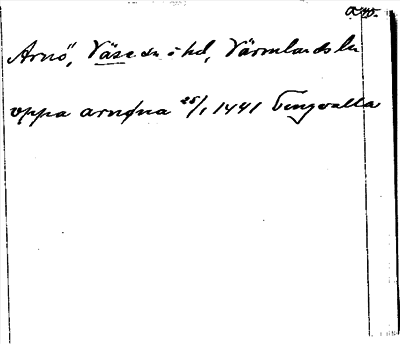 avo.
Arnö, Väse sn o hd, Värmlands ln
uppa arnøna 25/1 1441 Tingvalla